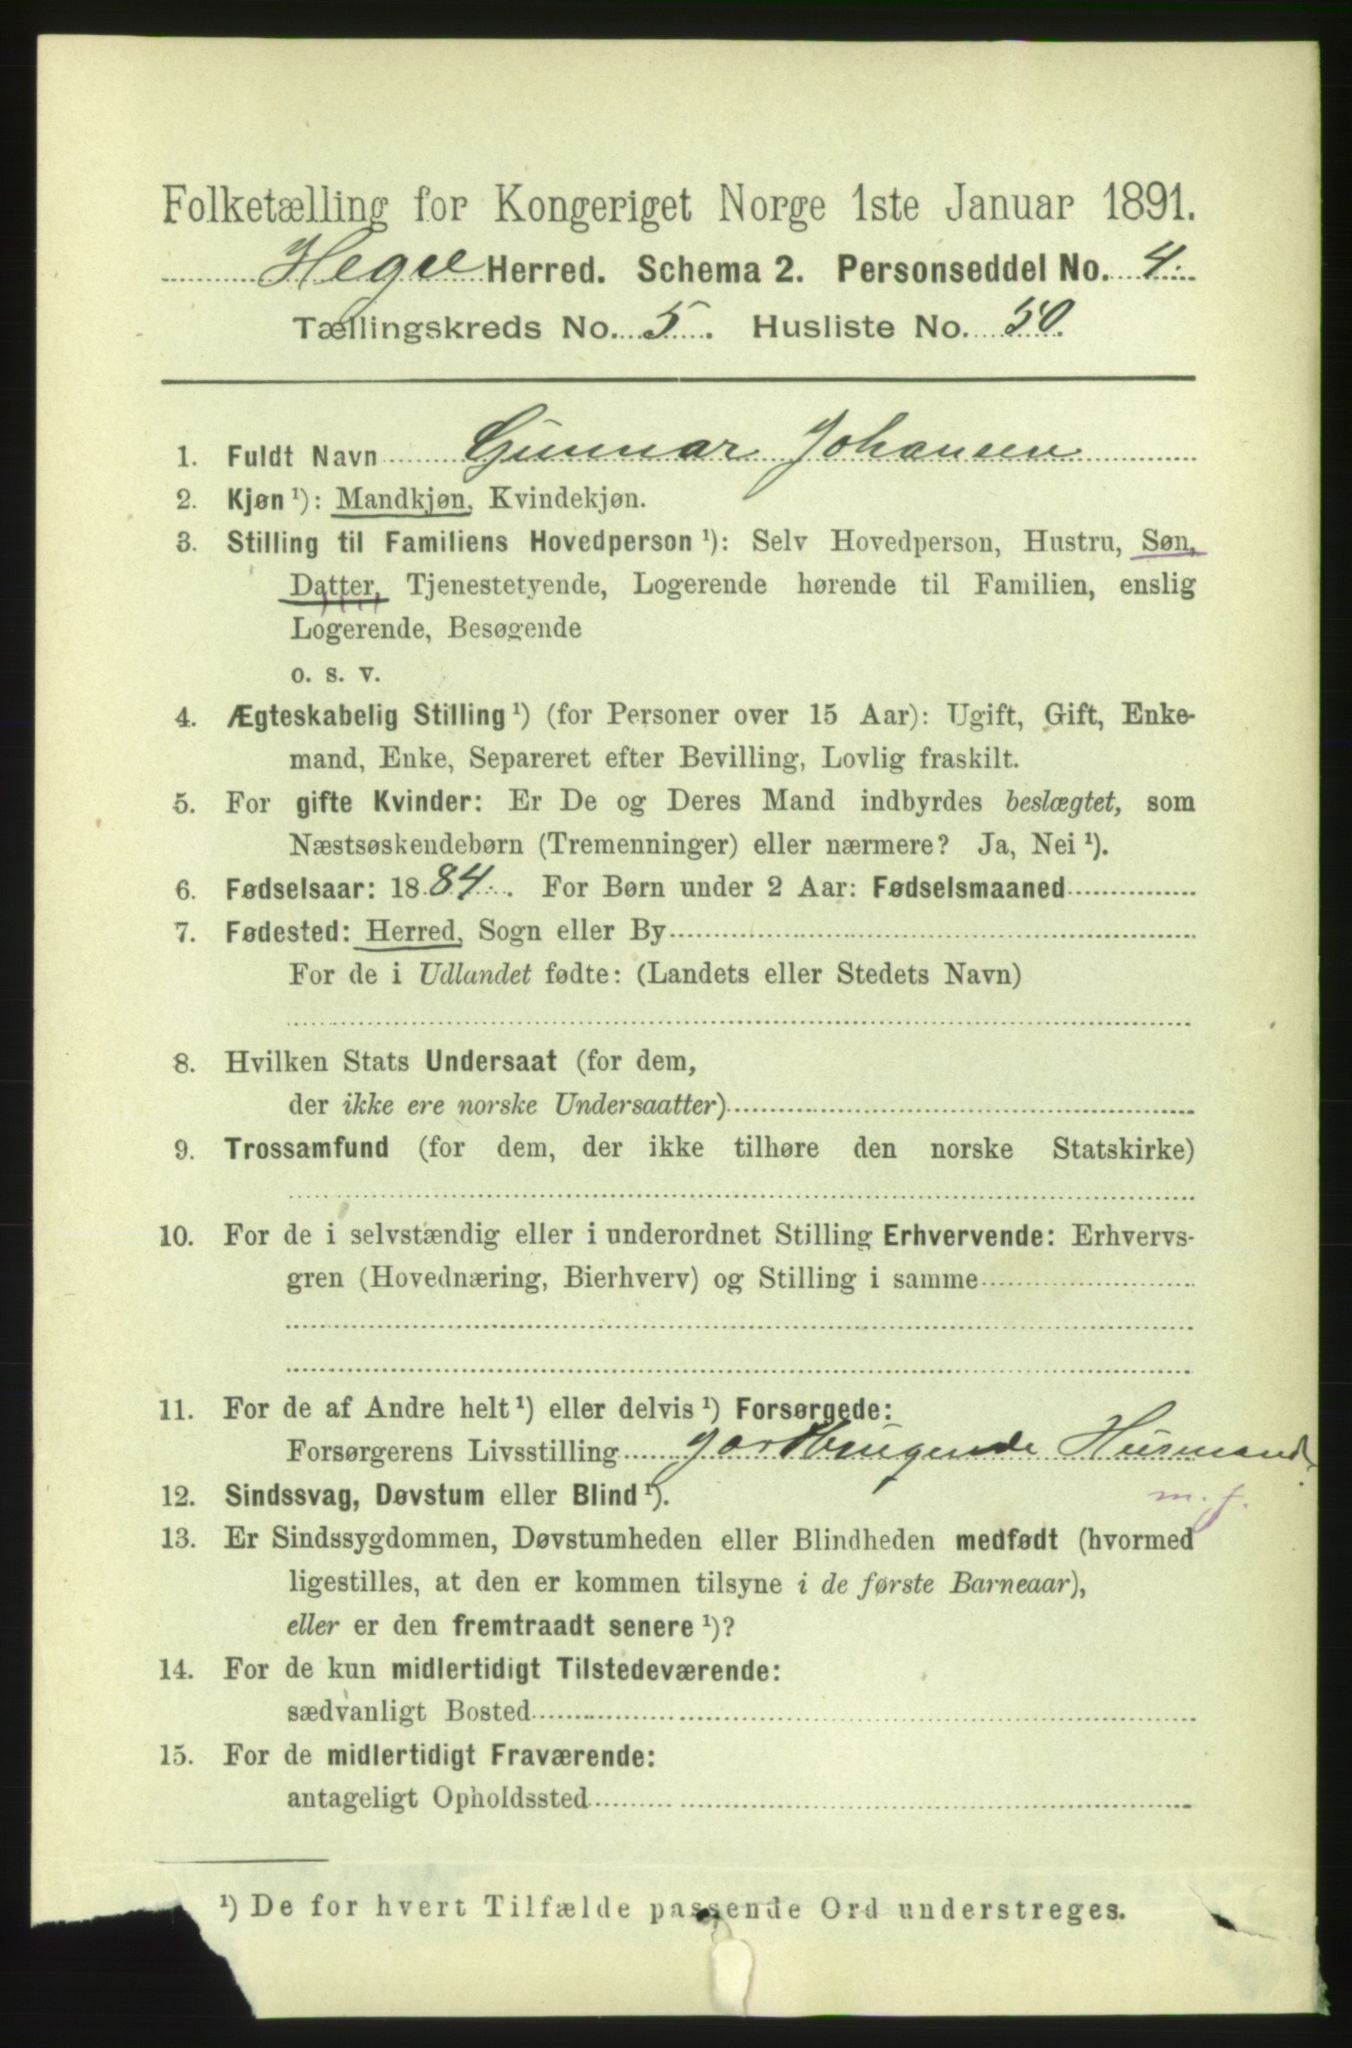 Folketælling for Kongeriget Norge 1ste Januar 1891.
Hegre Herred. Schema 2. Personseddel No. 4.
Tællingskreds No. 5. Husliste No. 50.
1. Fuldt Navn Gunnar Johansen
2. Kjøn ¹): Mandkjøn, Kvindekjøn.
3. Stilling til Familiens Hovedperson ¹): Selv Hovedperson, Hustru, Søn,
Datter, Tjenestetyende, Logerende hørende til Familien, enslig
Logerende, Besøgende
o. s. v.
4. Ægteskabelig Stilling ¹) (for Personer over 15 Aar): Ugift, Gift, Enke-
mand, Enke, Separeret efter Bevilling, Lovlig fraskilt.
5. For gifte Kvinder: Er De og Deres Mand indbyrdes beslægtet, som
Næstsøskendebørn (Tremenninger) eller nærmere? Ja, Nei ¹).
6. Fødselsaar: 1884. For Børn under 2 Aar: Fødselsmaaned
7. Fødested: Herred, Sogn eller By
For de i Udlandet fødte: (Landets eller Stedets Navn)
8. Hvilken Stats Undersaat (for dem,
der ikke ere norske Undersaatter)
9. Trossamfund (for dem, der ikke tilhøre den norske Statskirke)
10. For de i selvstændig eller i underordnet Stilling Erhvervende: Erhvervs-
gren (Hovednæring, Bierhverv) og Stilling i samme
11. For de af Andre helt ¹) eller delvis ¹) Forsørgede:
Forsørgerens Livsstilling Jordbrugende Husmand
12. Sindssvag, Døvstum eller Blind ¹). m. f.
13. Er Sindssygdommen, Døvstumheden eller Blindheden medfødt (hvormed
ligestilles, at den er kommen tilsyne i de første Barneaar),
eller er den fremtraadt senere ¹)?
14. For de kun midlertidigt Tilstedeværende:
sædvanligt Bosted
15. For de midlertidigt Fraværende:
antageligt Opholdssted
¹) De for hvert Tilfælde passende Ord understreges.